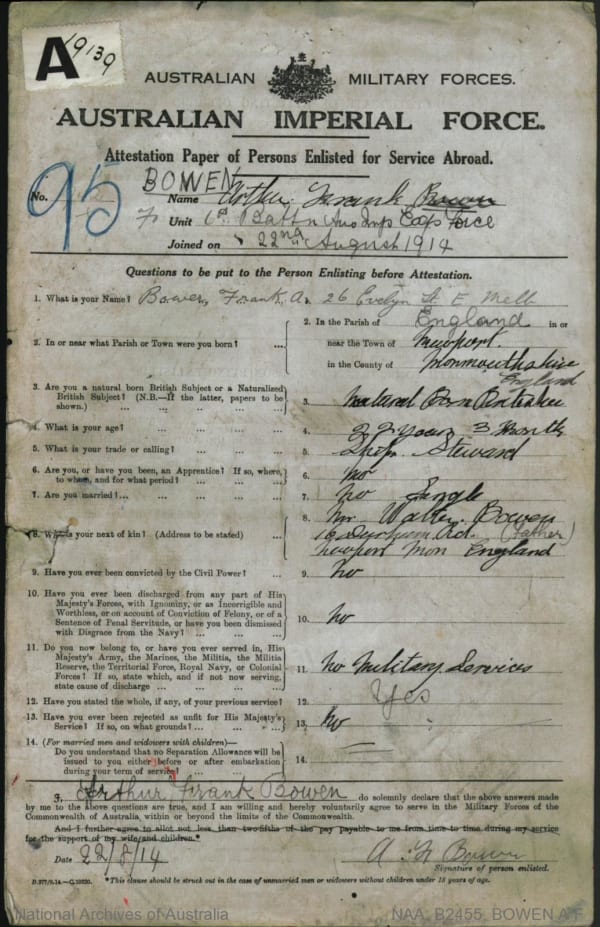 A 19139
AUSTRALIAN MILITARY FORCES.
AUSTRALIAN IMPERIAL FORCE.
Attestation Paper of Persons Enlisted for Service Abroad.
BOWEN
No. 95 Name Arthur Frank Bowen
Unit 6th Battn Aus Imp Exp Force
Joined on 22nd August 1914
Questions to be put to the Person Enlisting before Attestation.
1. What is your Name? Bowen, Frank A. 26 Evelyn St. E Melb
2. In or near what Parish or Town were you born? ... 2. In the Parish of England in or
near the Town of Newport.
in the County of Monmouthshire
England
3. Are you a natural born British Subject or a Naturalized
British Subject? (N.B.—If the latter, papers to be
shown.) ... ... ... ... ... 3. Natural Born
4. What is your age? ... ... ... ... 4. 22 Years 3 Months
5. What is your trade or calling? ... ... ... 5. Ships Steward
6. Are you, or have you been, an Apprentice? If so, where,
to whom, and for what period? ... ... ... 6. No
7. Are you married? ... ... ... ... 7. No Single
8. What is your next of kin? (Address to be stated) ... 8. Mr Walter Bowen
16 Rd. (Father)
Newport Mon England
9. Have you ever been convicted by the Civil Power? ... 9. No
10. Have you ever been discharged from any part of His
Majesty's Forces, with Ignominy, or as Incorrigible and
Worthless, or on account of Conviction of Felony, or of a
Sentence of Penal Servitude, or have you been dismissed
with Disgrace from the Navy? ... ... ... 10. No
11. Do you now belong to, or have you ever served in, His
Majesty's Army, the Marines, the Militia, the Militia
Reserve, the Territorial Force, Royal Navy, or Colonial
Forces? If so, state which, and if not now serving,
state cause of discharge ... ... ... ... 11. No Military Services
12. Have you stated the whole, if any, of your previous service? 12. Yes
13. Have you ever been rejected as unfit for His Majesty's
Service? If so, on what grounds? ... ... ... 13. No
14. (For married men and widowers with children)—
Do you understand that no Separation Allowance will be
issued to you either before or after embarkation
during your term of service? ... ... ... 14.
I, Arthur Frank Bowen do solemnly declare that the above answers made
by me to the above questions are true, and I am willing and hereby voluntarily agree to serve in the Military Forces of the
Commonwealth of Australia, within or beyond the limits of the Commonwealth.
And I further agree to allot not less than two-fifths of the pay payable to me from time to time during my service
for the support of my wife and children.*
Date 22/8/14 A F Bowen
Signature of person enlisted.
D.377/9.14.—C.10920. *This clause should be struck out in the case of unmarried men or widowers without children under 18 years of age.
National Archives of Australia NAA: B2455, BOWEN A F